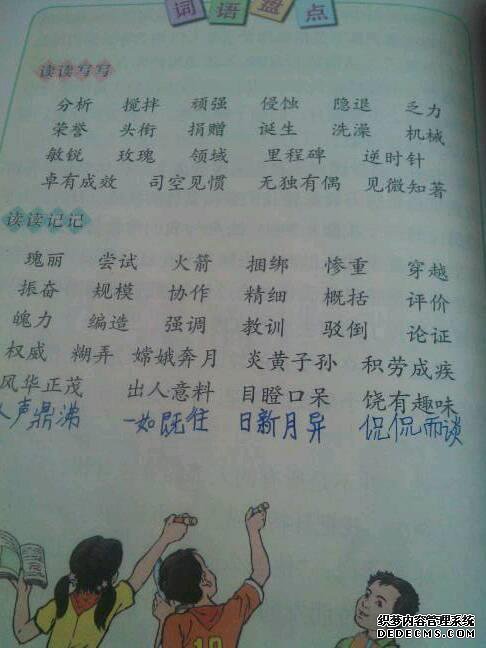 词语盘点
读读写写
分析 搅拌 顽强 侵蚀 隐退 乏力
荣誉 头衔 捐赠 诞生 洗澡 机械
敏锐 玫瑰 领域 里程碑 逆时针
卓有成效 司空见惯 无独有偶 见微知著
读读记记
瑰丽 尝试 火箭 捆绑 惨重 穿越
振奋 规模 协作 精细 概括 评价
魄力 编造 强调 教训 驳倒 论证
权威 糊弄 嫦娥奔月 炎黄子孙 积劳成疾
风华正茂 出人意料 目瞪口呆 饶有趣味
人声鼎沸 一如既往 日新月异 侃侃而谈
10
织梦内容管理系统
DEDECMS.COM